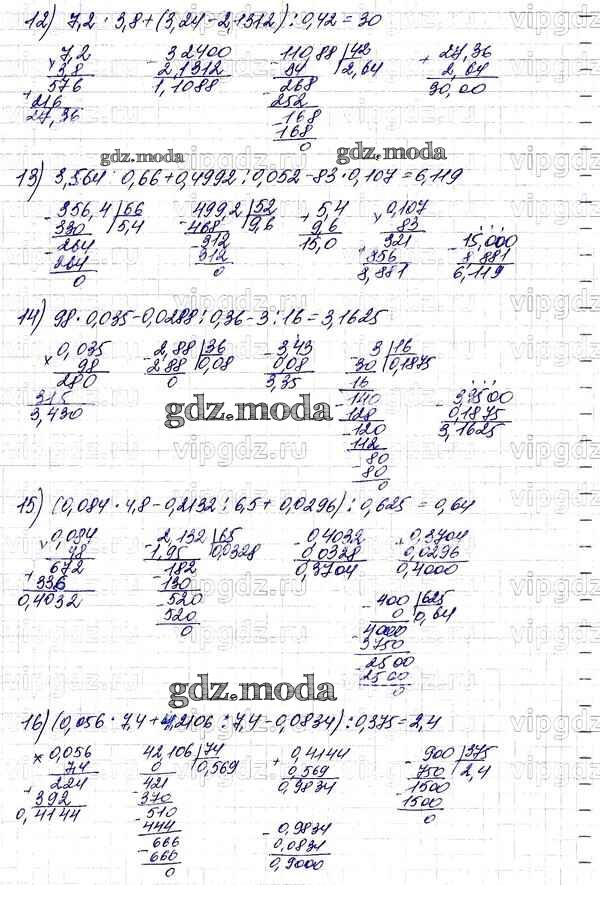 12) 7,2 · 3,8 + (3,24 - 2,1312) : 0,42 = 30
7,2 - 3 2400 - 110,88 | 42 + 27,36
× 3,8 2,1312 84 2,64 2,64
576 1,1088 268 30,00
+ 216 252
27,36 - 168
168
0
gdz.moda gdz.moda
13) 3,564 : 0,66 + 0,4992 : 0,052 - 83 · 0,107 = 6,119
- 356,4 | 66 - 499,2 | 52 + 5,4 × 0,107
330 5,4 468 9,6 9,6 83 - 15,000
- 264 - 312 15,0 321 8,881
264 312 + 856 6,119
0 0 8,881
14) 98 · 0,035 - 0,0288 : 0,36 - 3 : 16 = 3,1625
× 0,035 - 2,88 | 36 - 3,43 3 | 16
98 2 88 0,08 0,08 - 30 0,1875
280 0 3,35 16 - 3,3500
315 - 140 0,1875
3,430 128 3,1625
- 120
112
- 80
80
0
gdz.moda
15) (0,084 · 4,8 - 0,2132 : 6,5 + 0,0296) : 0,625 = 0,64
× 0,084 - 2,132 | 65 - 0,4032 + 0,3704
48 1,95 0,0328 0,0328 0,0296
672 - 182 0,3704 0,4000
+ 336 130
0,4032 - 520 - 400 | 625
520 0 0,64
0 - 4000
3750
- 2500
2500
0
gdz.moda
16) (0,056 · 7,4 + 4,2106 : 7,4 - 0,0834) : 0,375 = 2,4
× 0,056 42,106 | 74 + 0,4144 - 900 | 375
7,4 0 0,569 0,569 750 2,4
224 421 0,9834 - 1500
+ 392 - 370 1500
0,4144 - 510 0
444 - 0,9834
- 666 0,0834
666 0,9000
0
vipgdz.ru